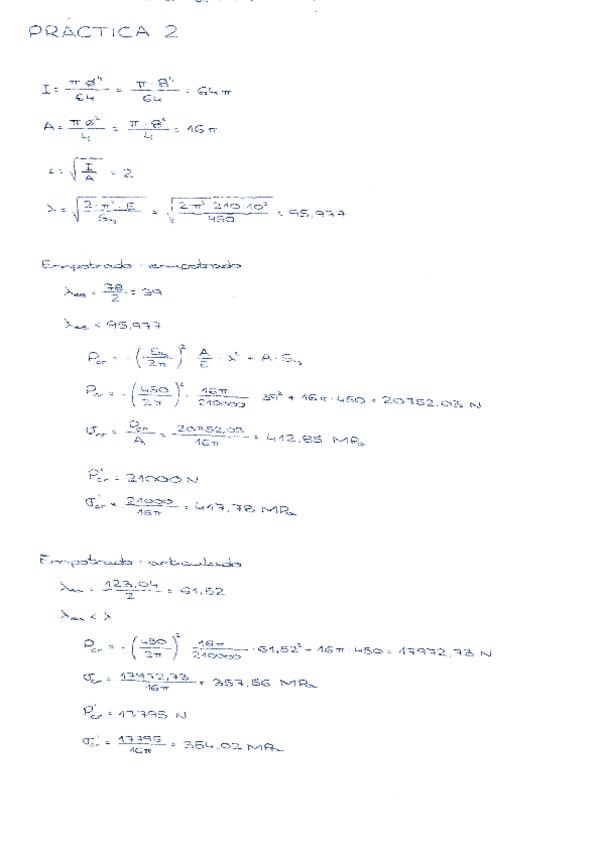 PRÁCTICA 2
I = π ø⁴ / 64 = π · 8⁴ / 64 = 64 π
A = π ø² / 4 = π · 8² / 4 = 16 π
i = √(I / A) = 2
λ = √(2 · π² · E / σy) = √(2 π² 210 · 10³ / 450) = 95,977
Empotrado - empotrado
= 78 / 2 = 39
< 95,977
Pcr = -(σy / 2π)² · A / E · λ² + A · σy
Pcr = -(450 / 2π)² · 16π / 210000 · 39² + 16π · 450 = 20752,03 N
σcr = Pcr / A = 20752,03 / 16π = 412,85 MPa
P'cr = 21000 N
σ'cr = 21000 / 16π = 417,78 MPa
Empotrado - articulado
= 123,04 / 2 = 61,52
< λ
Pcr = -(450 / 2π)² 16π / 210000 · 61,52² + 16π 450 = 17972,73 N
σcr = 17972,73 / 16π = 357,56 MPa
P'cr = 17795 N
σ'cr = 17795 / 16π = 354,02 MPa